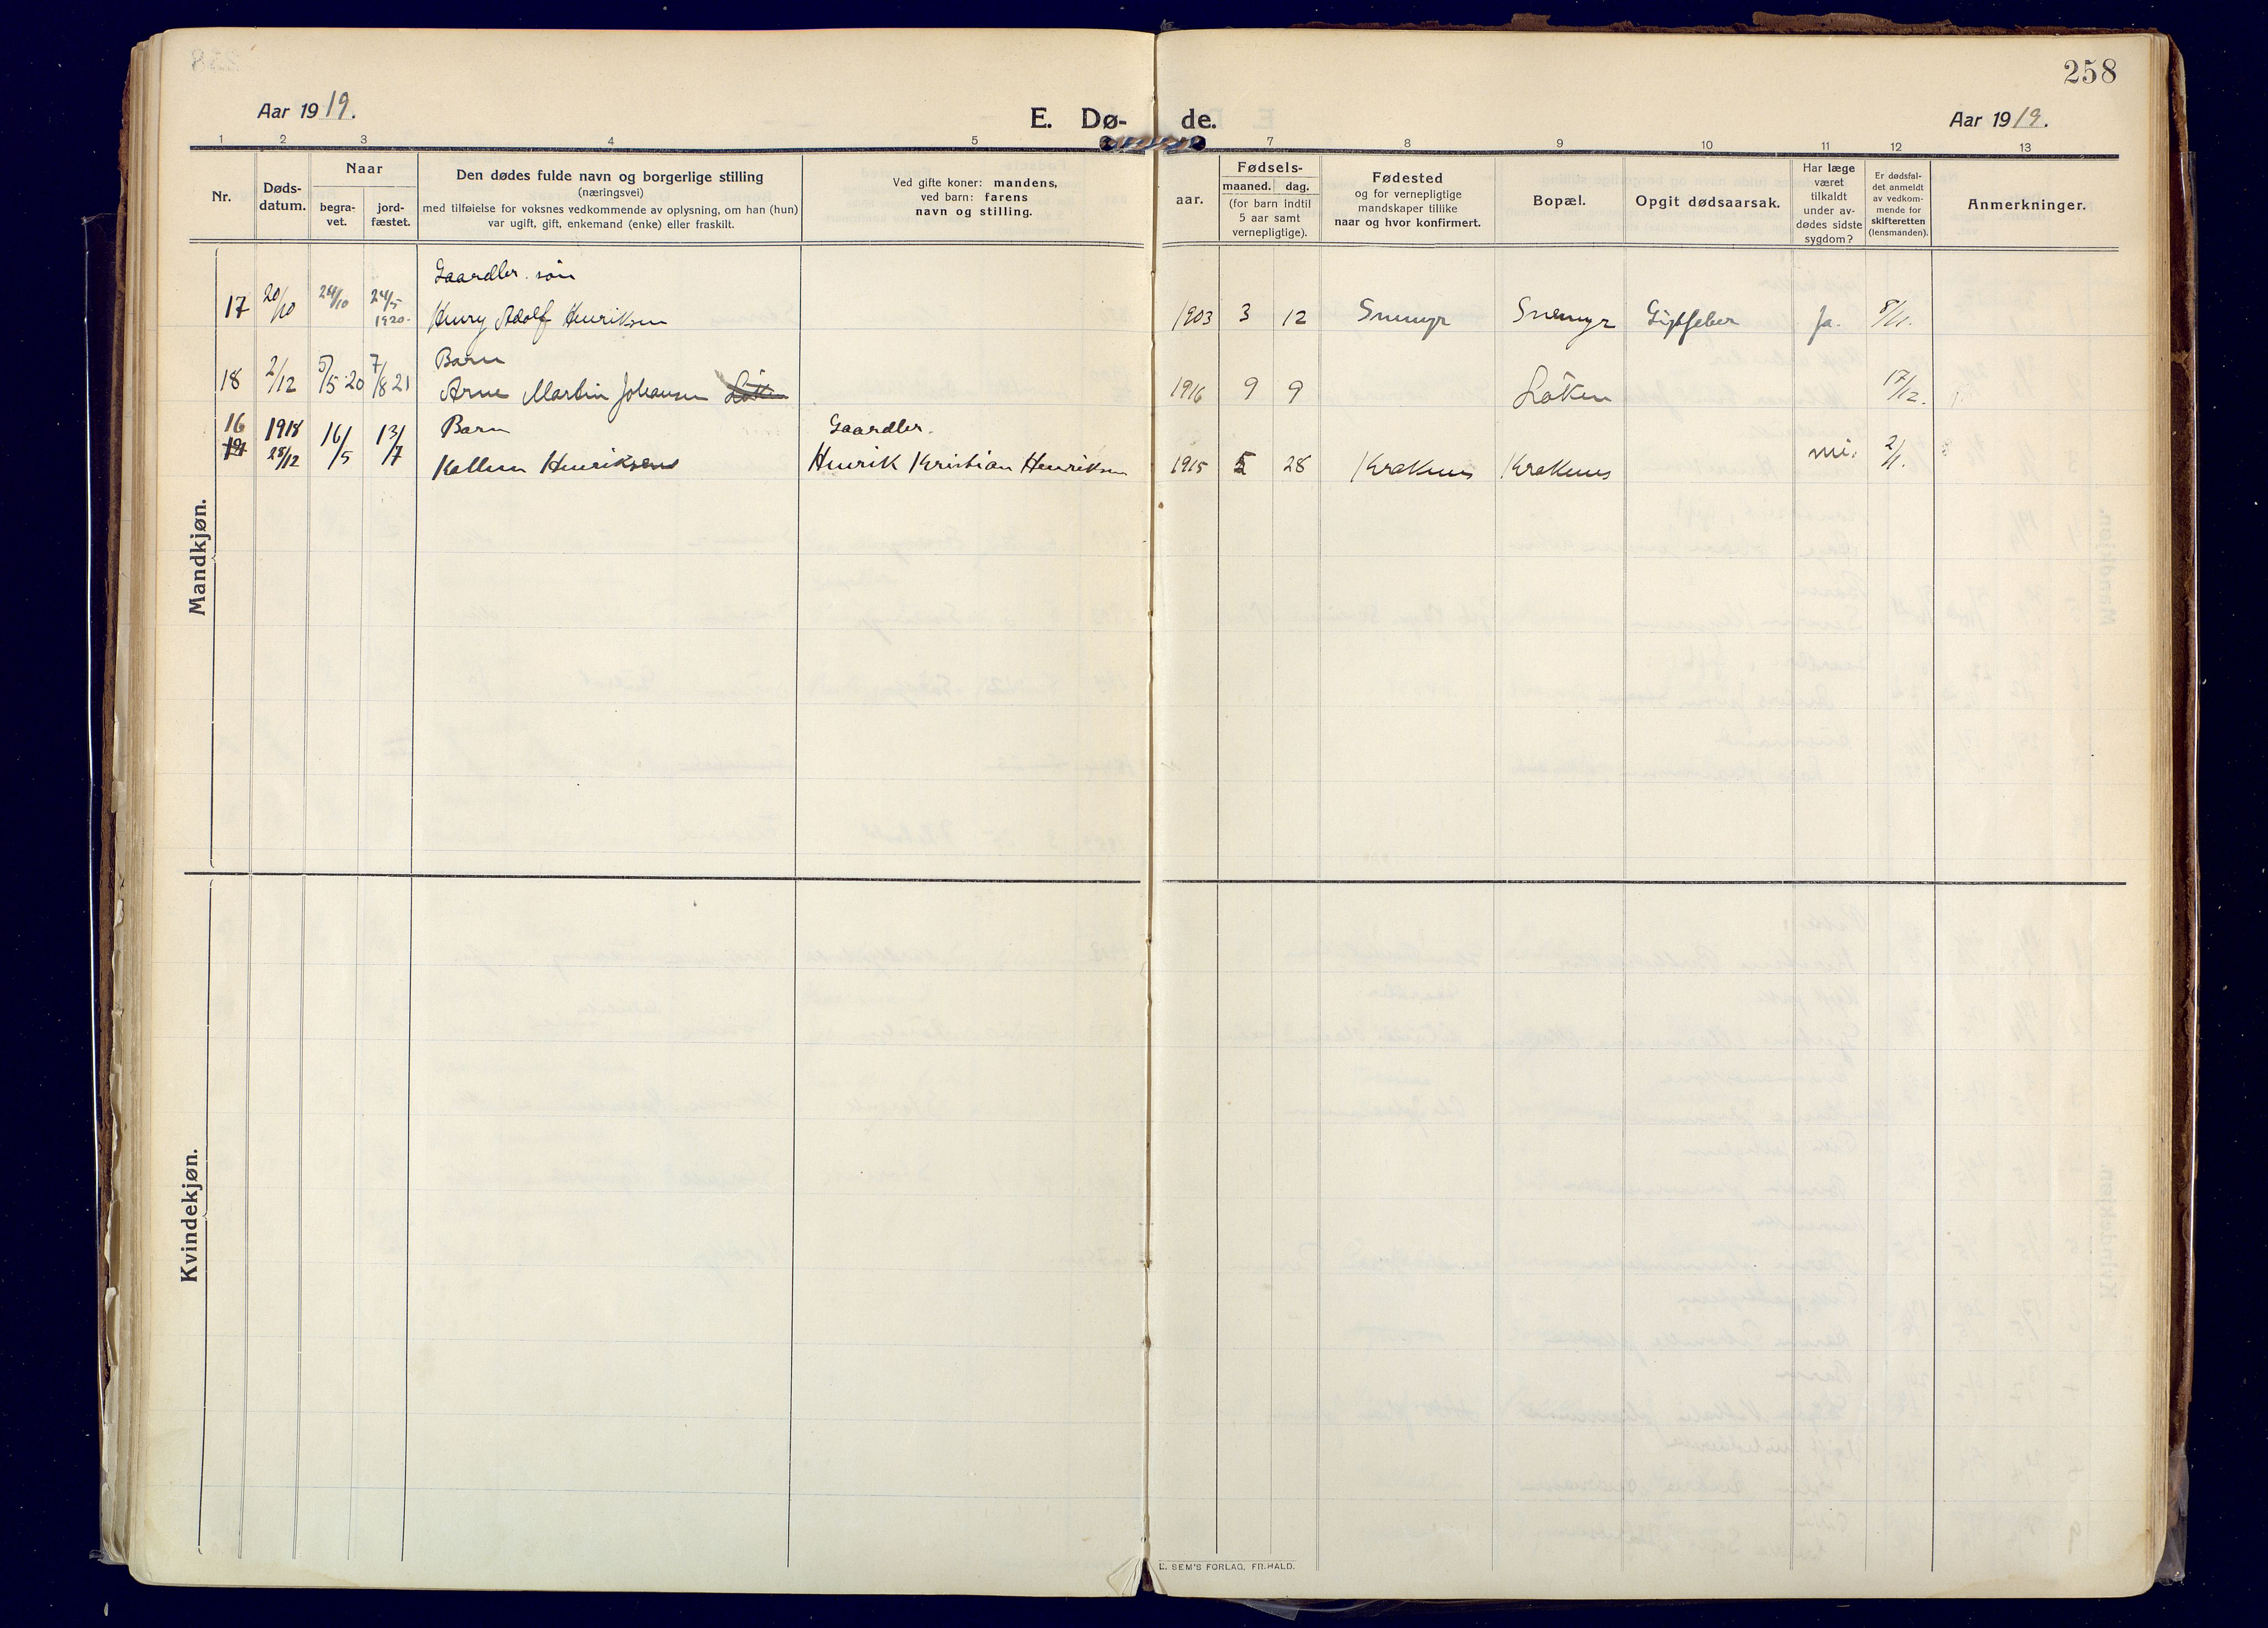 258
Aar 1919.
E. Dø-de.
Aar 1919.
1 2 3 4 5 7 8 9 10 11 12 13
Nr.
Døds-
datum.
Naar
begra-
vet.
jord-
fæstet.
Den dødes fulde navn og borgerlige stilling
(næringsvei)
med tilføielse for voksnes vedkommende av oplysning, om han (hun)
var ugift, gift, enkemand (enke) eller fraskilt.
Ved gifte koner: mandens,
ved barn: farens
navn og stilling.
aar.
Fødsels-
maaned. dag.
(for barn indtil
5 aar samt
vernepligtige).
Fødested
og for vernepligtige
mandskaper tillike
naar og hvor konfirmert.
Bopæl.
Opgit dødsaarsak.
Har læge
været
tilkaldt
under av-
dødes sidste
sygdom?
Er dødsfal-
det anmeldt
av vedkom-
mende for
skifteretten
(lensmanden).
Anmerkninger.
Mandkjøn.
Gaardbr. søn
17 20/10 24/10 24/5 1920. Henry Adolf Henriksen 1903 3 12 Snemyr Snemyr Gigtfeber Ja. 8/11.
Barn
18 2/12 5/5 20 7/8 21 Arne Martin Johansen Løken 1916 9 9 Løken 17/12.
16 1918 16/5 13/7 Barn Gaardbr.
19 28/12 Henriksen Henrik Kristian Henriksen 1915 5 28 Kraknes Kraknes 2/1.
Kvindekjøn.
E. SEM'S FORLAG, FR.HALD.